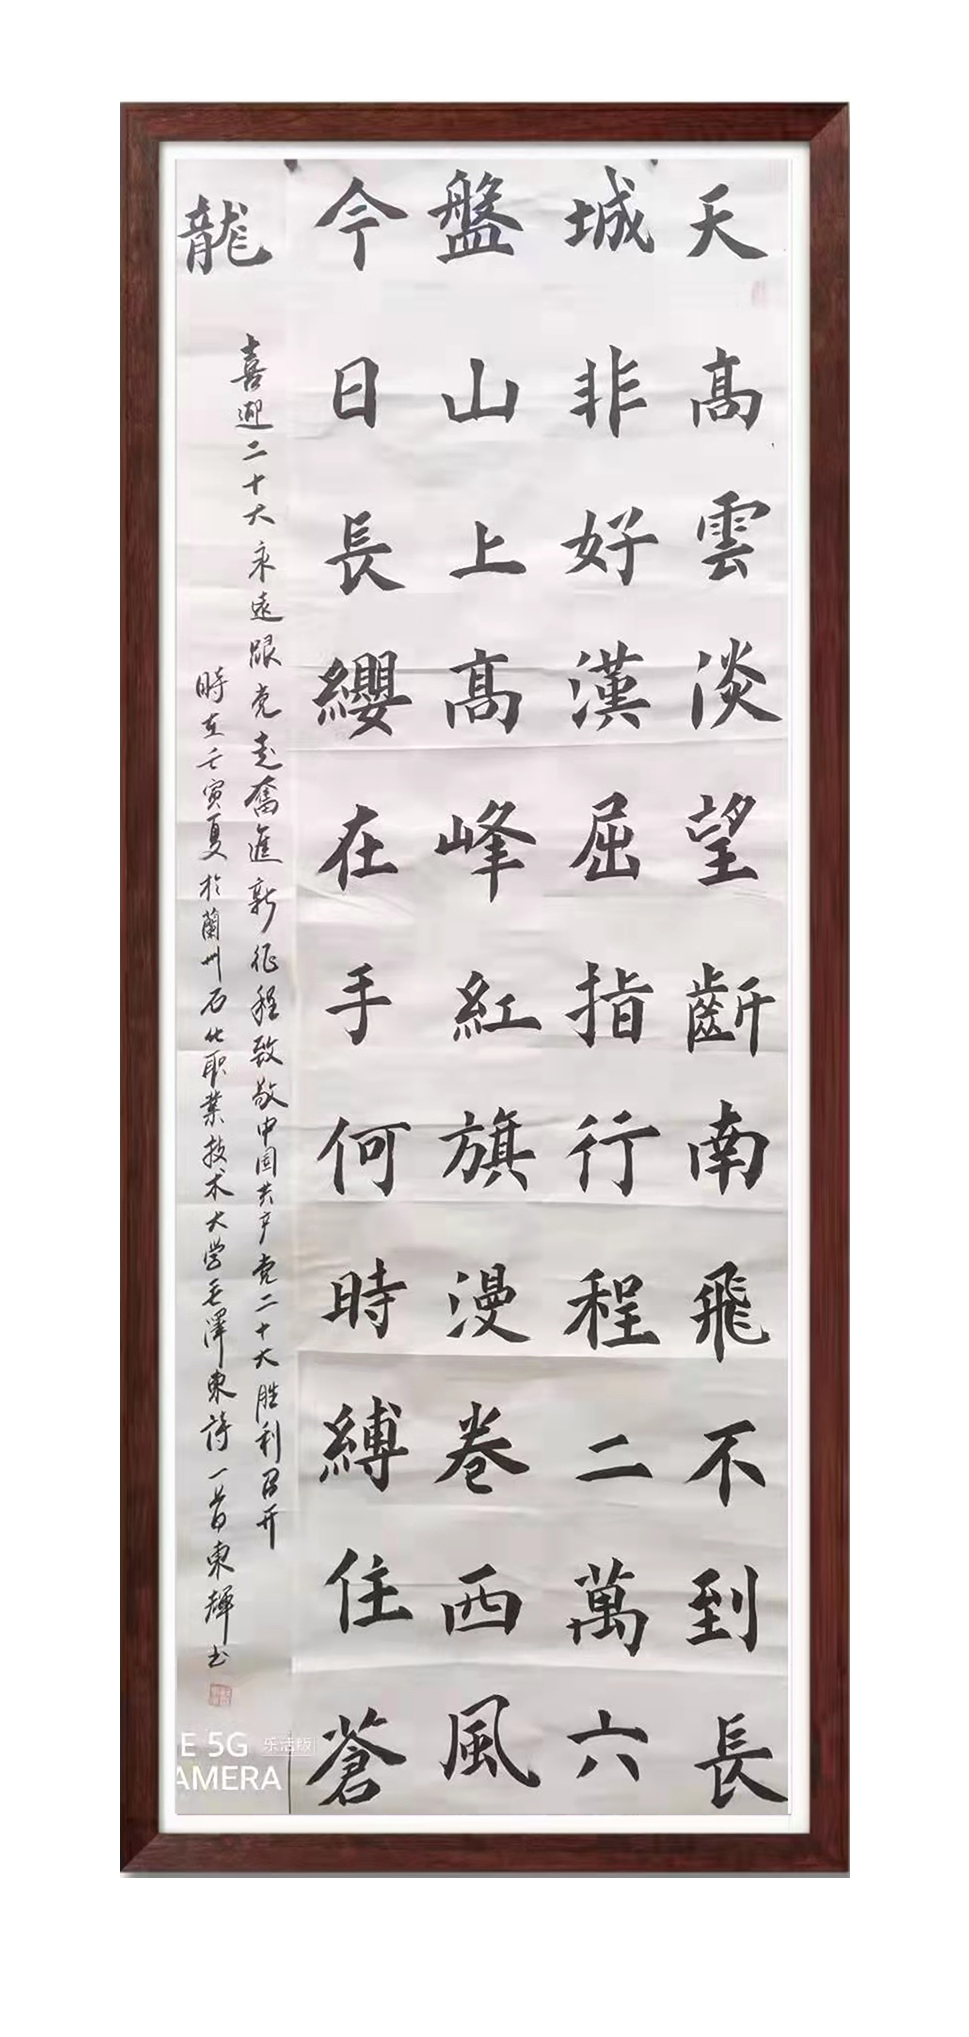 天高雲淡望斷南飛不到長
城非好漢屈指行程二萬六
盤山上高峰紅旗漫卷西風
今日長纓在手何時縛住蒼
龍
喜迎二十大永遠跟党走奮進新征程致敬中国共产党二十大胜利召开
時在壬寅夏於蘭州石化职業技术大学毛澤東詩一首東輝书
E 5G 乐活版
AMERA